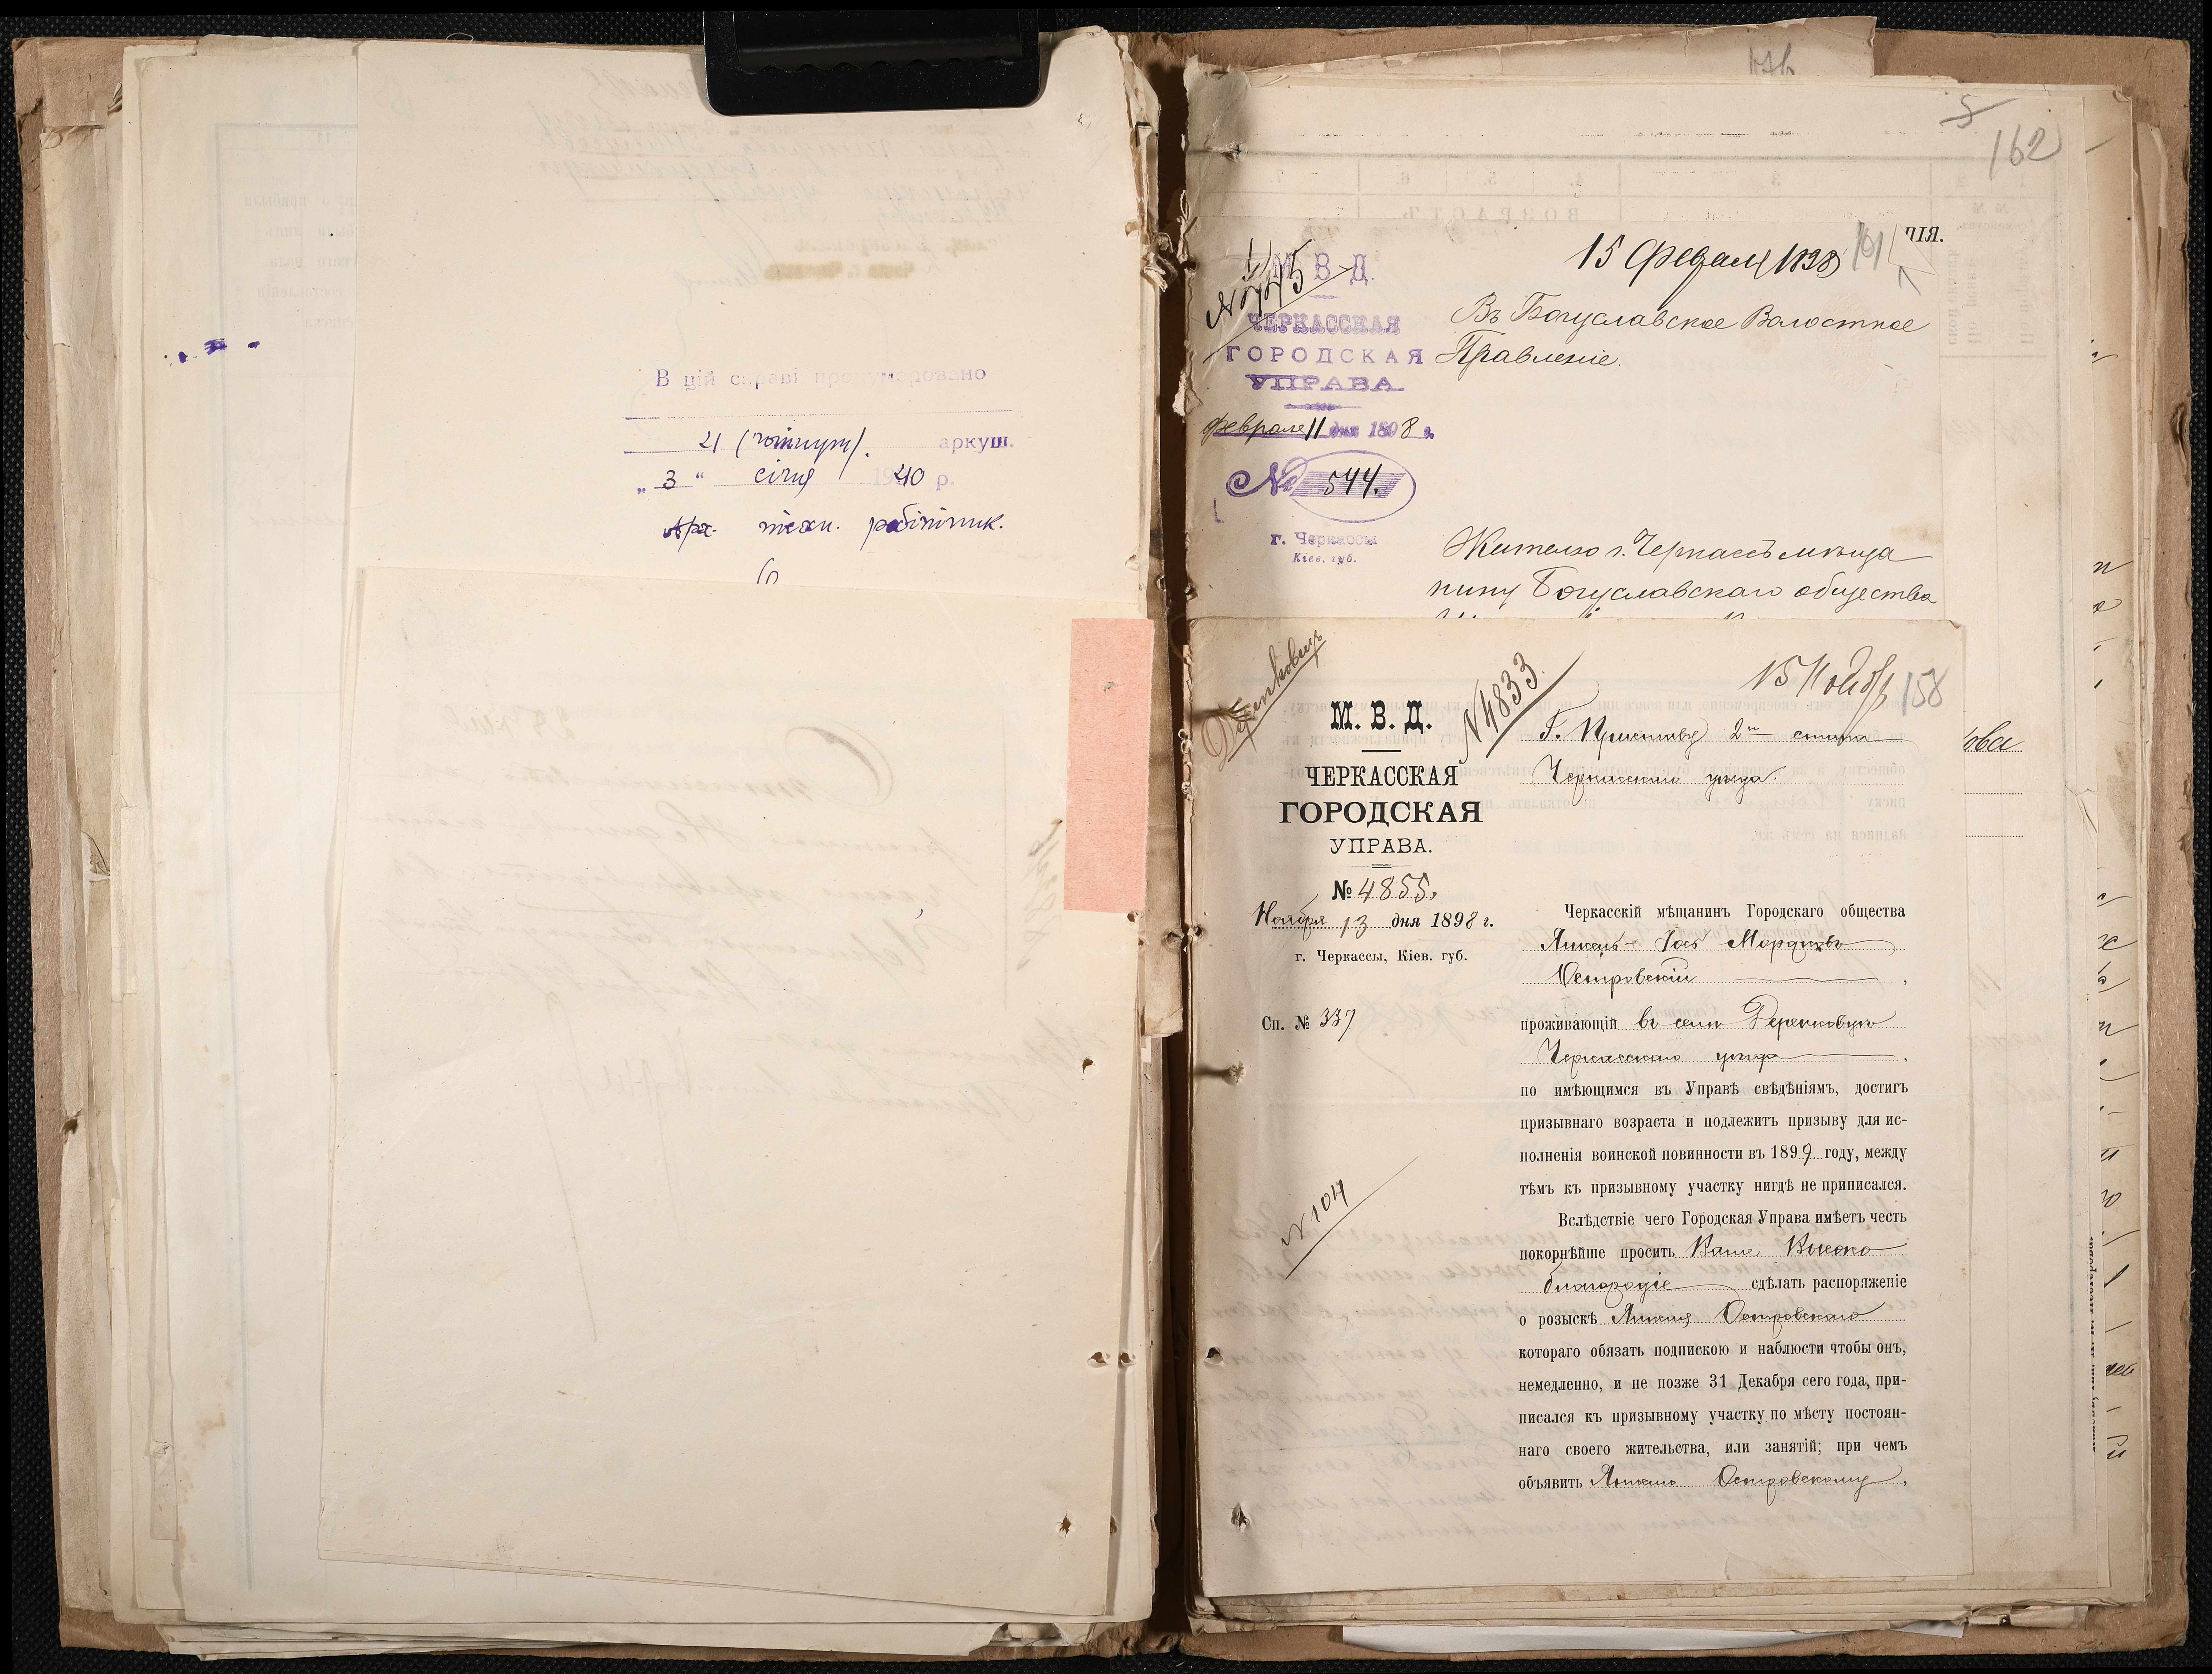 В цій справі пронумеровано
аркуш.
„ 3 “ січня 1940 р.
Арх. техн. робітник.
162
5
ЦІЯ.
М. В. Д.
ЧЕРКАССКАЯ
ГОРОДСКАЯ
УПРАВА
Февраля 11 дня 1898 г.
№ 544.
г. Черкассы
Кіев. губ.
15 Феврал 1898
161
Въ Богуславское Волостное
Правленіе.
Жителю г. Черкассъ мѣща
нину Богуславскаго общества
158
15 Ноябр
N 4833
М. В. Д.
ЧЕРКАССКАЯ
ГОРОДСКАЯ
УПРАВА.
№ 4855.
Ноября 13 дня 1898 г.
г. Черкассы, Кіев. губ.
Сп. № 337
N 104
Г. Приставу 2го стана
Черкасскаго уѣзда.
Черкасскій мѣщанинъ Городскаго общества
Янкель-Іось Мордковъ
Островскій,
проживающій въ селѣ Деренковцѣ
Черкасскаго уѣзда,
по имѣющимся въ Управѣ свѣдѣніямъ, достигъ
призывнаго возраста и подлежитъ призыву для ис-
полненія воинской повинности въ 1899 году, между
тѣмъ къ призывному участку нигдѣ не приписался.
Вслѣдствіе чего Городская Управа имѣетъ честь
покорнѣйше просить Ваше Высоко
благородіе сдѣлать распоряженіе
о розыскѣ Янкеля Островскаго
котораго обязать подпискою и наблюсти чтобы онъ,
немедленно, и не позже 31 Декабря сего года, при-
писался къ призывному участку по мѣсту постоян-
наго своего жительства, или занятій; при чемъ
объявить Янкелю Островскому,